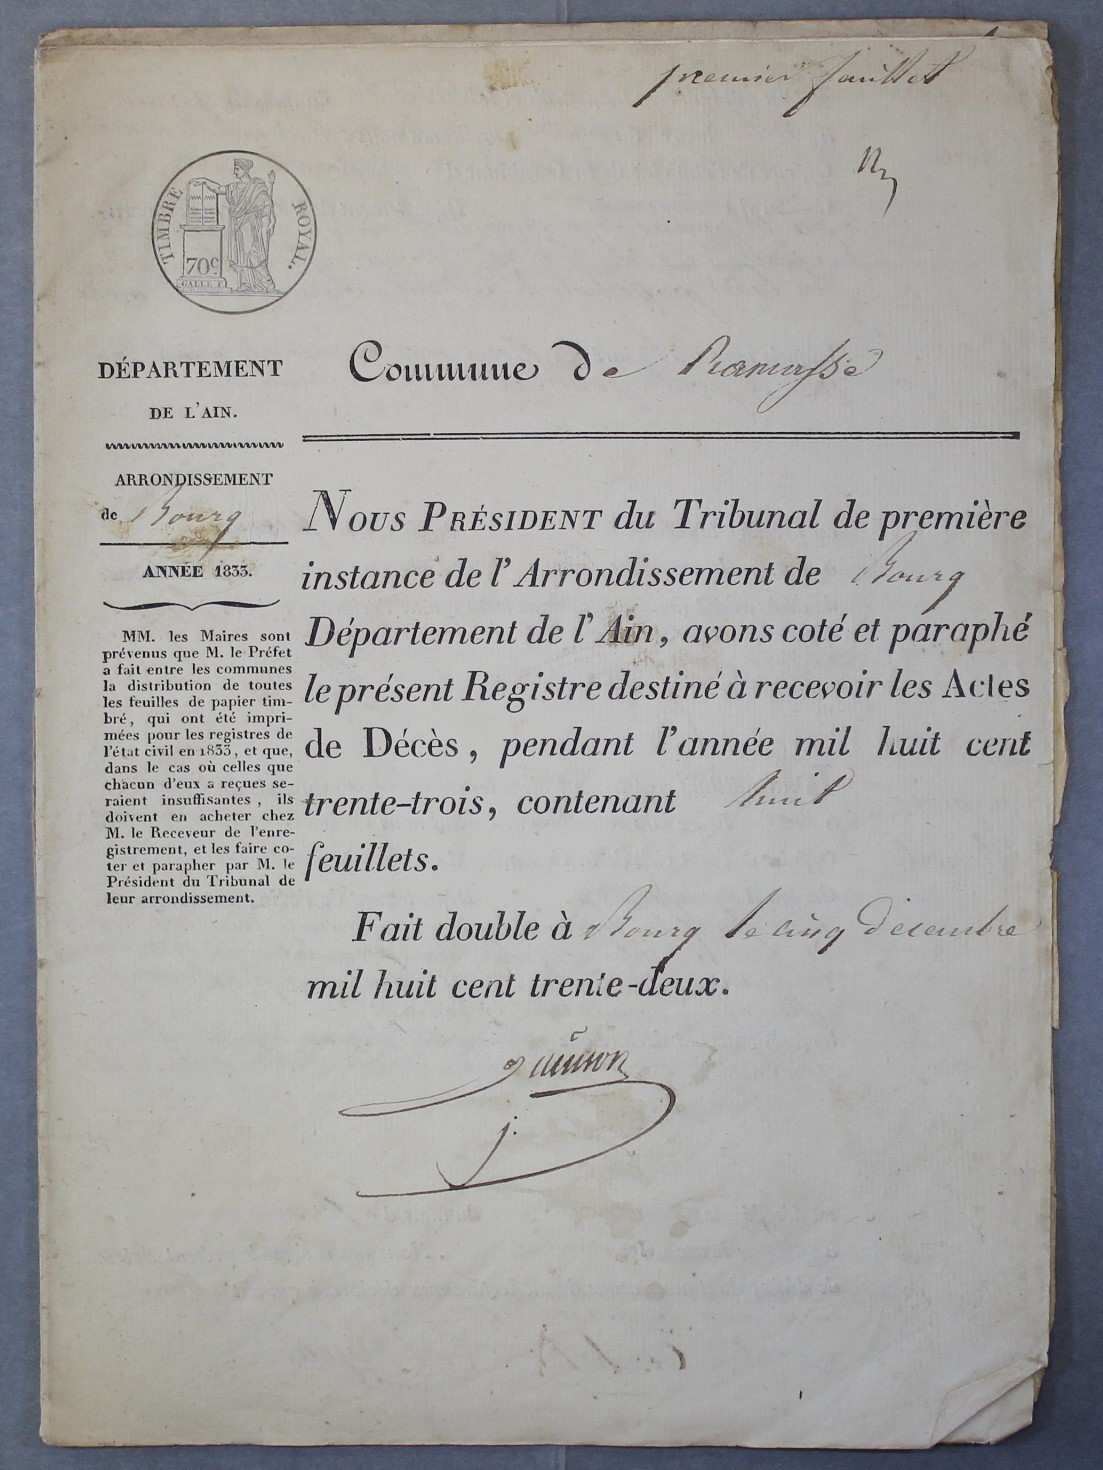 premier feuillet
TIMBRE ROYAL.
70c
GALLE F.
DÉPARTEMENT
DE L'AIN.
ARRONDISSEMENT
de Bourg
ANNÉE 1833.
MM. les Maires sont
prévenus que M. le Préfet
a fait entre les communes
la distribution de toutes
les feuilles de papier tim-
bré, qui ont été impri-
mées pour les registres de
l'état civil en 1833, et que,
dans le cas où celles que
chacun d'eux a reçues se-
raient insuffisantes, ils
doivent en acheter chez
M. le Receveur de l'enre-
gistrement, et les faire co-
ter et parapher par M. le
Président du Tribunal de
leur arrondissement.
Commune de Ramasse
NOUS PRÉSIDENT du Tribunal de première
instance de l'Arrondissement de Bourg
Département de l'Ain, avons coté et paraphé
le présent Registre destiné à recevoir les Actes
de Décès, pendant l'année mil huit cent
trente-trois, contenant huit
feuillets.
Fait double à Bourg le cinq décembre
mil huit cent trente-deux.